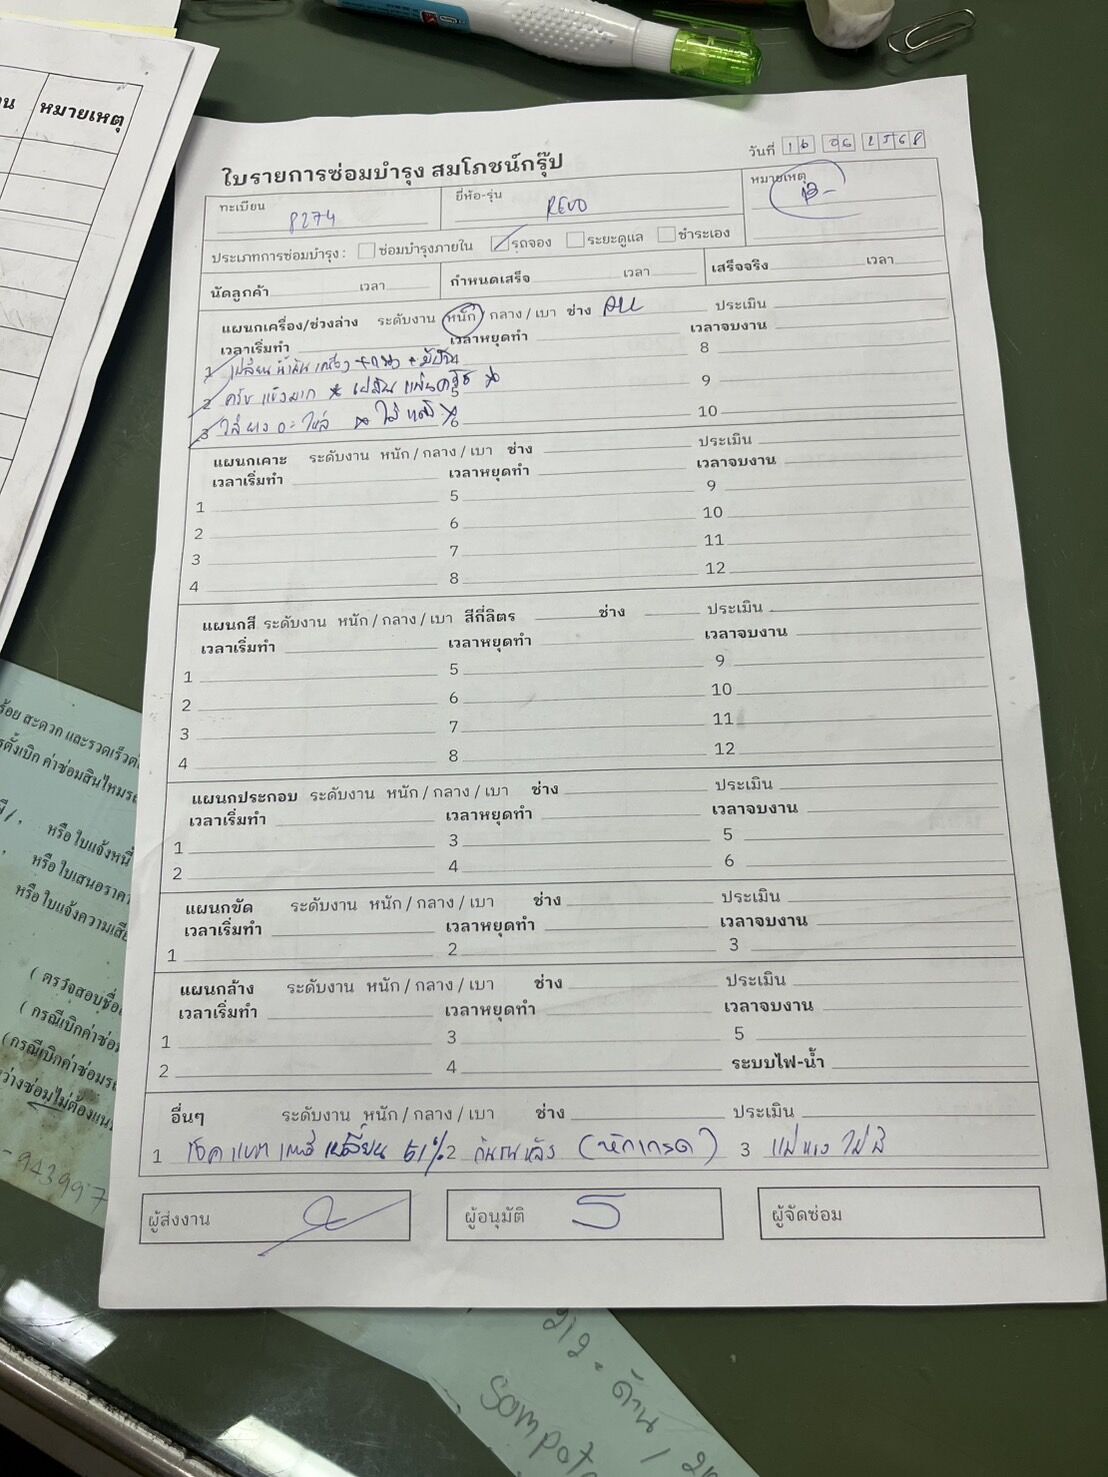 หมายเหตุ
ใบรายการซ่อมบำรุง สมโภชน์กรุ๊ป
วันที่ 16 06 2568
ทะเบียน 8274
ยี่ห้อ-รุ่น REVO
หมายเหตุ
ประเภทการซ่อมบำรุง : ซ่อมบำรุงภายใน รถจอง ระยะดูแล ชำระเอง
นัดลูกค้า เวลา กำหนดเสร็จ เวลา เสร็จจริง เวลา
แผนกเครื่อง/ช่วงล่าง ระดับงาน หนัก / กลาง / เบา ช่าง ประเมิน
เวลาเริ่มทำ เวลาหยุดทำ เวลาจบงาน
1 เปลี่ยนน้ำมันเครื่อง 8
2 ครัช แข็งมาก เปลี่ยน 5 9
3 ใส่ยาง อะไหล่ 6 10
แผนกเคาะ ระดับงาน หนัก / กลาง / เบา ช่าง ประเมิน
เวลาเริ่มทำ เวลาหยุดทำ เวลาจบงาน
1 5 9
2 6 10
3 7 11
4 8 12
แผนกสี ระดับงาน หนัก / กลาง / เบา สีกี่ลิตร ช่าง ประเมิน
เวลาเริ่มทำ เวลาหยุดทำ เวลาจบงาน
1 5 9
2 6 10
3 7 11
4 8 12
แผนกประกอบ ระดับงาน หนัก / กลาง / เบา ช่าง ประเมิน
เวลาเริ่มทำ เวลาหยุดทำ เวลาจบงาน
1 3 5
2 4 6
แผนกขัด ระดับงาน หนัก / กลาง / เบา ช่าง ประเมิน
เวลาเริ่มทำ เวลาหยุดทำ เวลาจบงาน
1 2 3
แผนกล้าง ระดับงาน หนัก / กลาง / เบา ช่าง ประเมิน
เวลาเริ่มทำ เวลาหยุดทำ เวลาจบงาน
1 3 5
2 4 ระบบไฟ-น้ำ
อื่นๆ ระดับงาน หนัก / กลาง / เบา ช่าง ประเมิน
1 เปลี่ยน 51% 2 กันชนหลัง 3 แม่แรง ไม่มี
ผู้ส่งงาน ผู้อนุมัติ ผู้จัดซ่อม
ร้อย สะดวก และรวดเร็ว
หรือ ใบแจ้งหนี้
หรือ ใบเสนอราคา
หรือ ใบแจ้งความ
( ตรวจสอบชื่อ
( กรณีเบิกค่าซ่อม
(กรณีเบิกค่าซ่อม
-943997
212 . ด้าน /